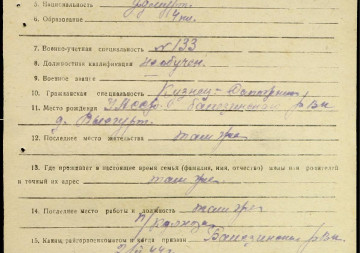 5. Национальность удмурт.
6. Образование 4 кл.
7. Военно-учетная специальность №133
8. Должностная квалификация необучен.
9. Военное звание
10. Гражданская специальность Кузнец-
11. Место рождения УАССР. р-он
д.
12. Последнее место жительства там же
13. Где проживает в настоящее время семья (фамилия, имя, отчество) жены или родителей
и точный их адрес там же
14. Последнее место работы и должность там же
Колхоз
15. Каким райгорвоенкоматом и когда призван р-вк